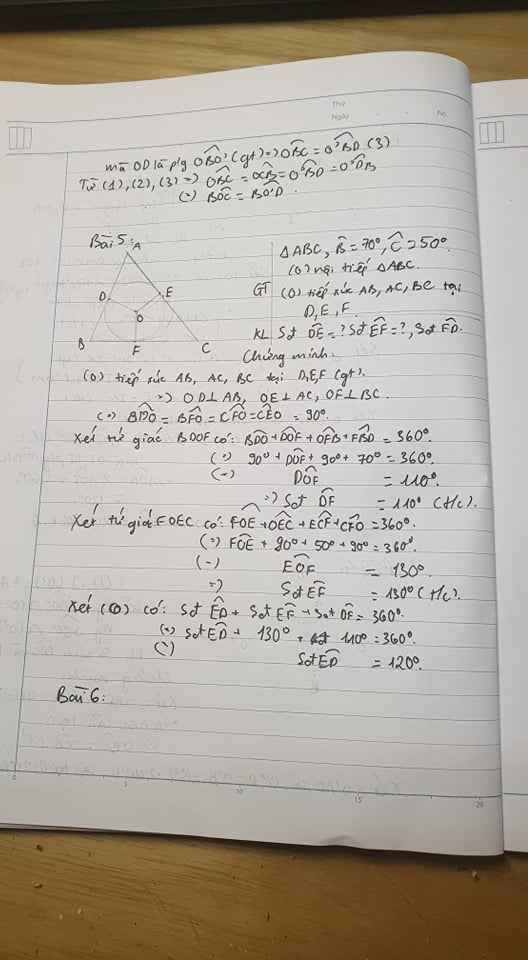 Thứ
Ngày No.
mà OD là p/g OBO' (gt) => OBC = O'BD (3)
Từ (1), (2), (3) => OBC = OCB = O'BD = O'DB
(=) BOC = BO'D.
Bài 5:
A
D
E
O
B
F
C
ΔABC, B = 70°, C = 50°
(O) nội tiếp ΔABC.
GT (O) tiếp xúc AB, AC, BC tại
D, E, F.
KL Sđ DE = ? Sđ EF = ?, Sđ FD.
Chứng minh.
(O) tiếp xúc AB, AC, BC tại D,E,F (gt).
=) OD⊥AB, OE⊥AC, OF⊥BC.
(=) BDO = BFO = CFO = CEO = 90°.
Xét tứ giác BDOF có: BDO + DOF + OFB + FBD = 360°
(=) 90° + DOF + 90° + 70° = 360°.
(=) DOF = 110°
=) Sđ DF = 110° (t/c).
Xét tứ giác FOEC có: FOE + OEC + ECF + CFO = 360°.
(=) FOE + 90° + 50° + 90° = 360°
(=) EOF = 130°.
=) Sđ EF = 130° (t/c).
Xét (O) có: Sđ ED + Sđ EF + Sđ DF = 360°
(=) Sđ ED + 130° + 110° = 360°.
(=) Sđ ED = 120°.
Bài 6:
0 5 10 15 20